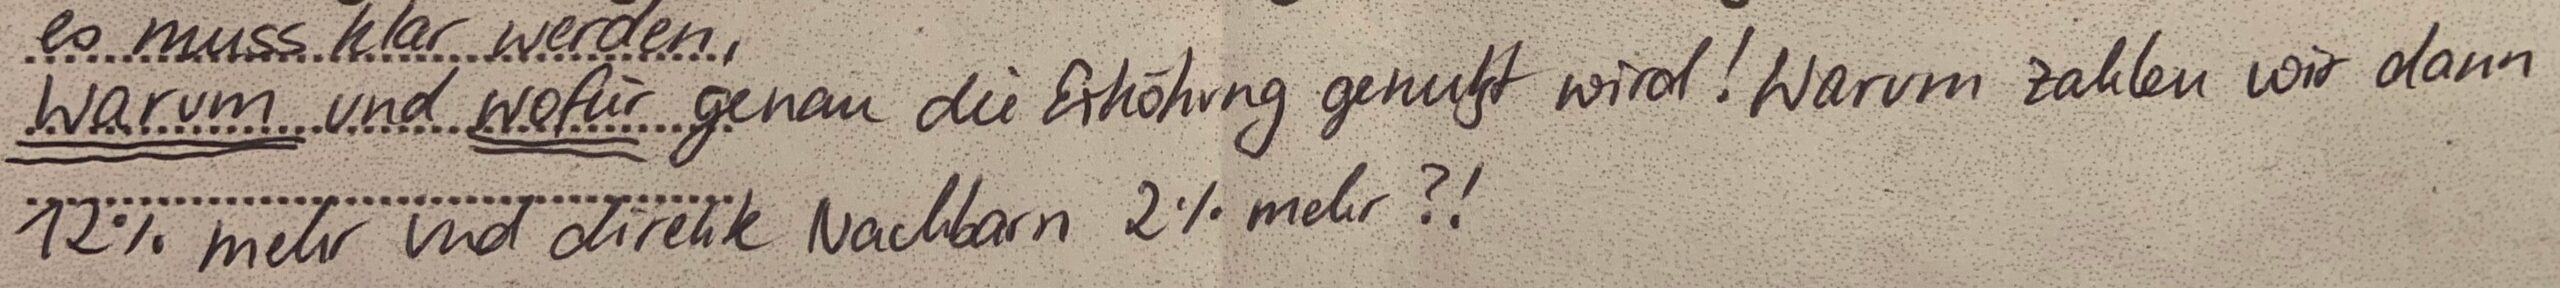 es muss klar werden,
Warum und wofür genau die Erhöhung genutzt wird! Warum zahlen wir dann
12% mehr und direkte Nachbarn 2% mehr?!